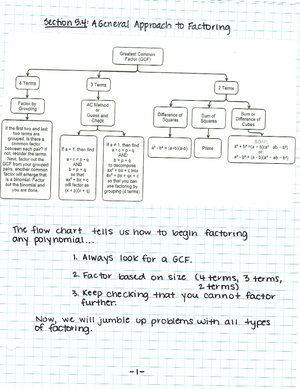 Section 5.4: A General Approach to Factoring
Greatest Common
Factor (GCF)
4 Terms
3 Terms
2 Terms
Factor by
Grouping
AC Method
or
Guess and
Check
Difference of
Squares
Sum of
Squares
Sum or
Difference of
Cubes
If the first two and last
two terms are
grouped, is there a
common factor
between each pair? If
not, reorder the terms.
Next, factor out the
GCF from your grouped
pairs, another common
factor will emerge that
is a binomial. Factor
out the binomial and
you are done.
If a = 1, then find
a · c = p · q
AND
b = p + q
so that
ax² + bx + c
will factor as
(x + p)(x + q)
If a ≠ 1, then find
a · c = p · q
AND
b = p + q
to decompose
ax² + bx + c into
ax² + px + qx + c
so that you can
use factoring by
grouping (4 terms)
a² - b² = (a+b)(a-b)
Prime
or
The flow chart tells us how to begin factoring
any polynomial...
1. Always look for a GCF.
2. Factor based on size (4 terms, 3 terms,
2 terms)
3. Keep checking that you cannot factor
further.
Now, we will jumble up problems with all types
of factoring.
-1-